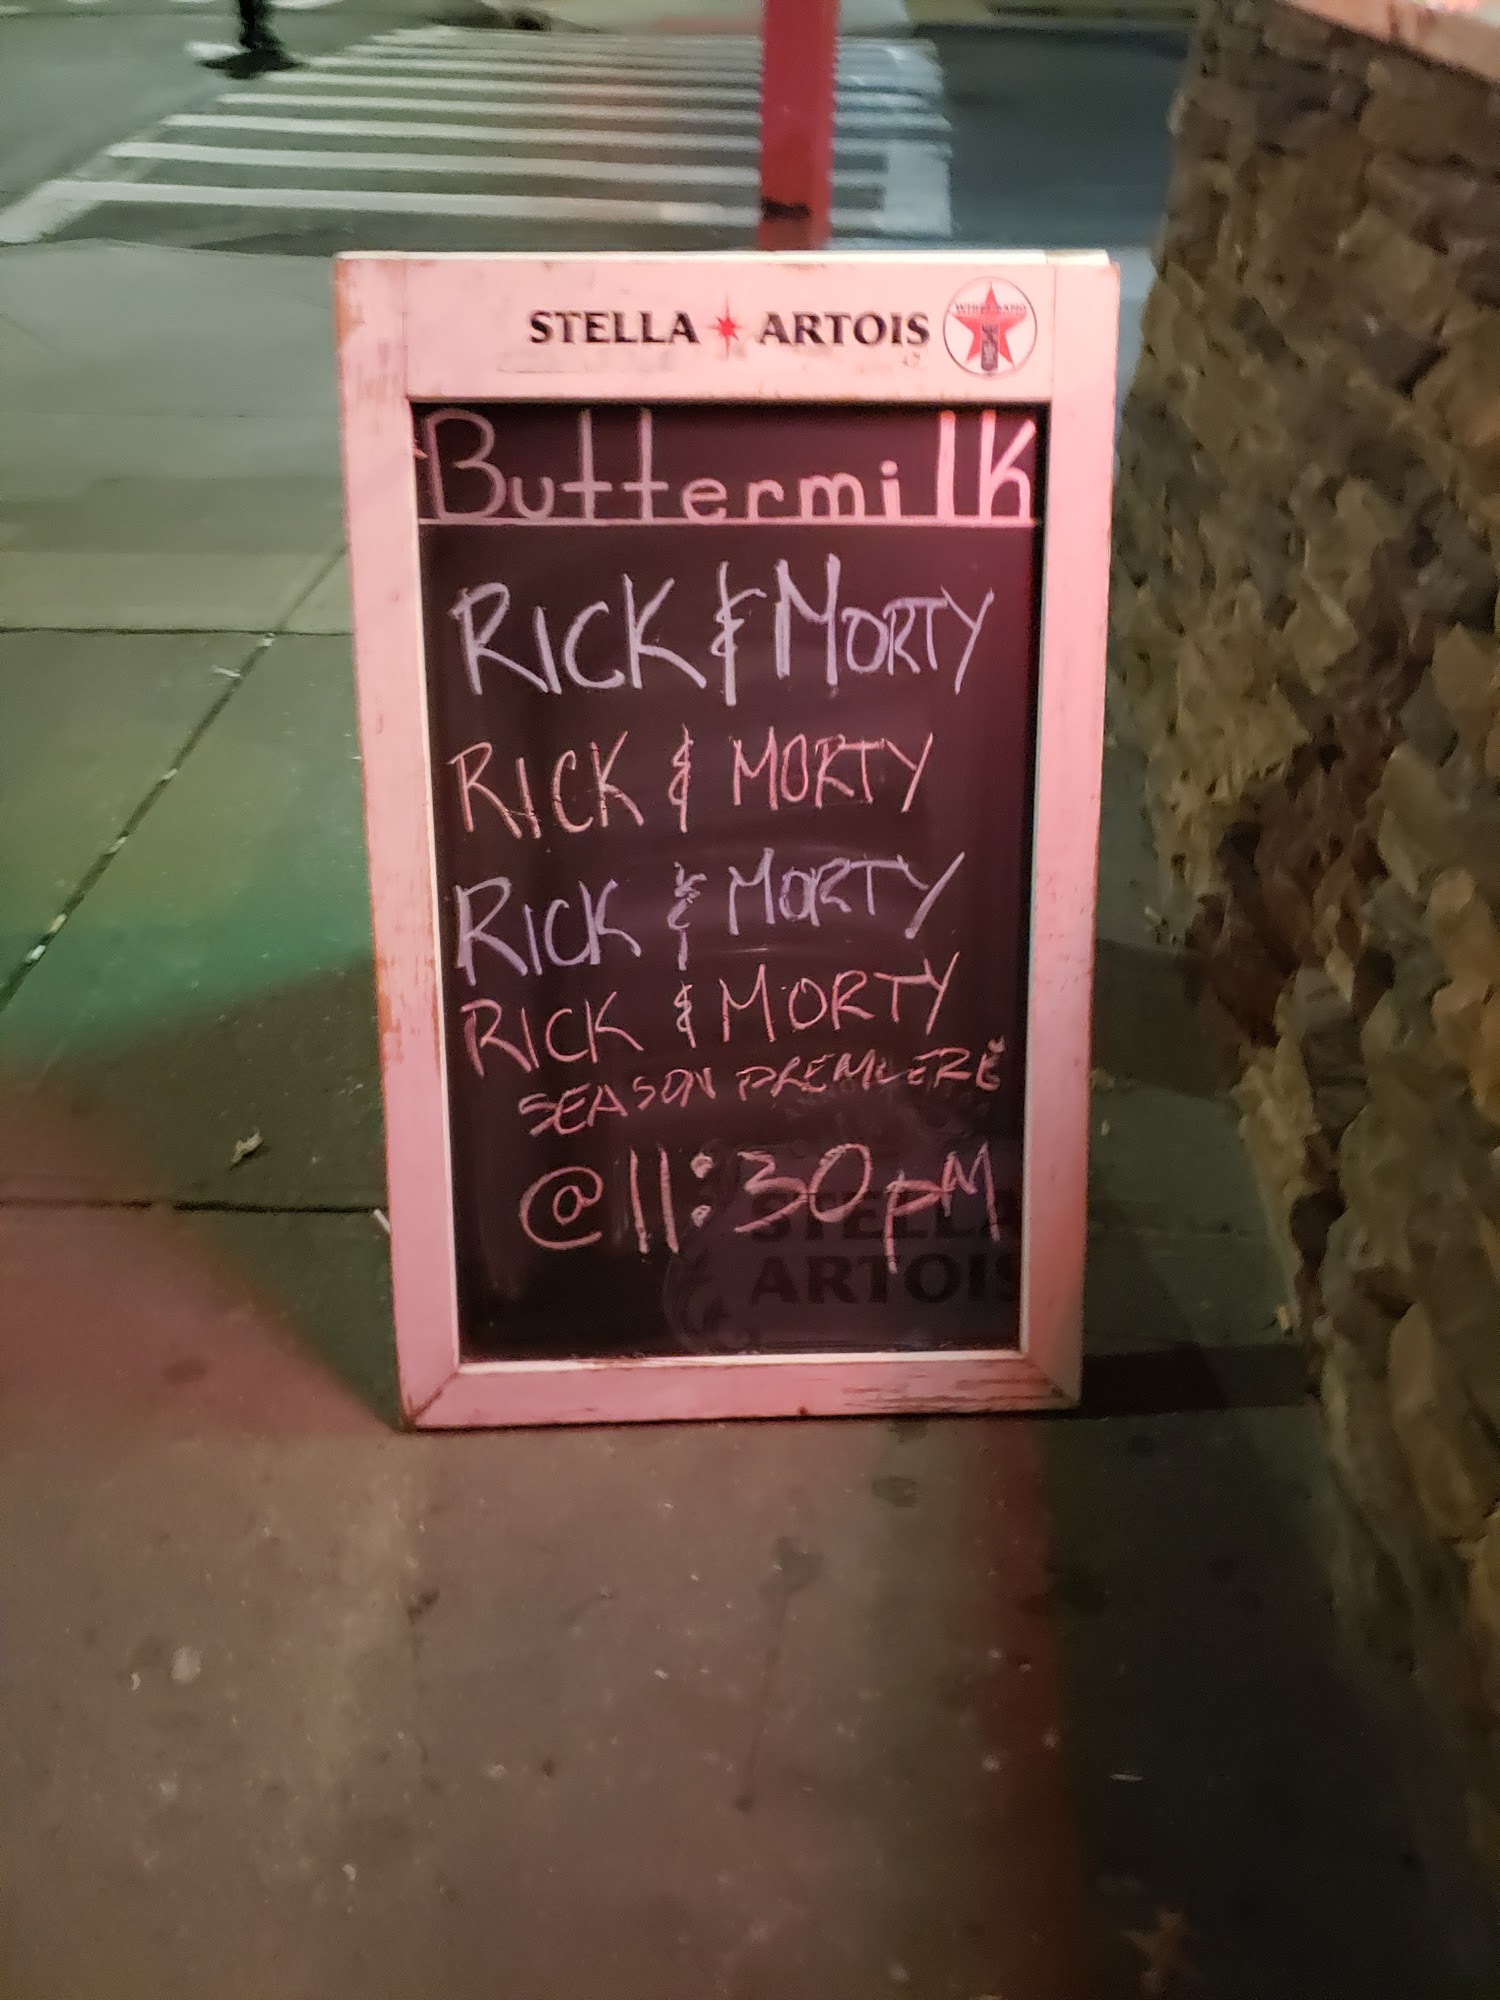 STELLA ARTOIS
Buttermilk
RICK & MORTY
RICK & MORTY
RICK & MORTY
RICK & MORTY
SEASON PREMIERE
@ 11:30pM
STELLA
ARTOIS